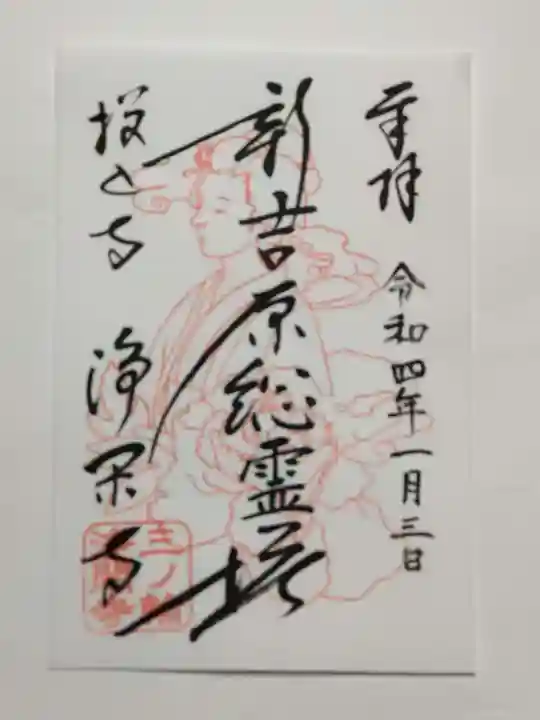 奉拝 令和四年一月三日
新吉原総霊塔
投込寺 浄閑寺
三ノ輪
浄閑寺